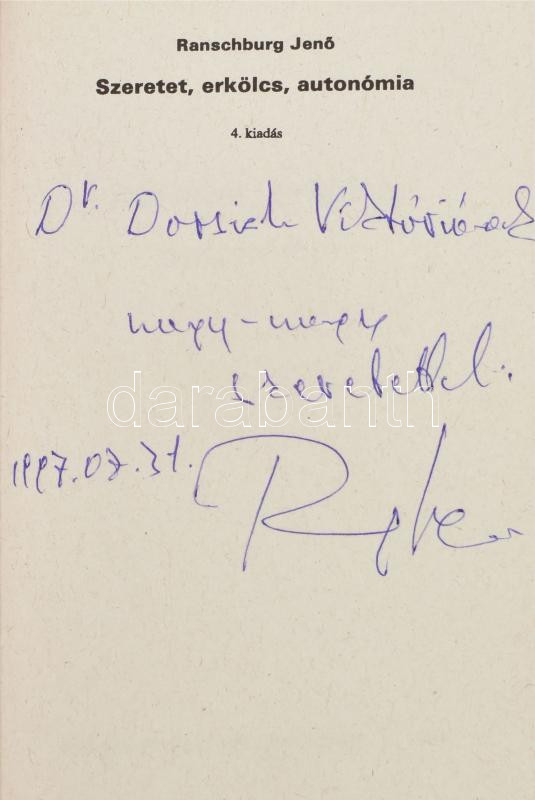 Ranschburg Jenő
Szeretet, erkölcs, autonómia
4. kiadás
Dr. Viktóriának
nagy-nagy
szeretettel.
darabanth
1997.07.31.